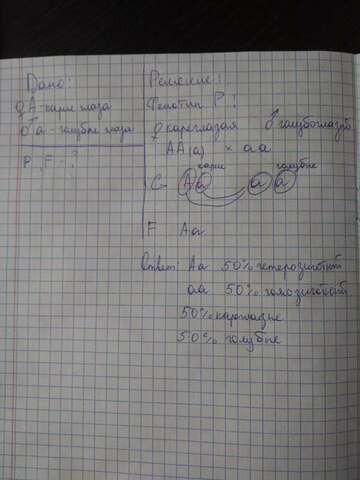 Дано:
♀ A - карие глаза
♂ a - голубые глаза
P, F - ?
Решение:
Фенотип P:
♀ кареглазая ♂ голубоглазый
AA(a) × aa
карие голубые
G A a a a
F Aa
Ответ: Aa 50% гетерозиготный
aa 50% гомозиготный
50% кареглазые
50% голубые